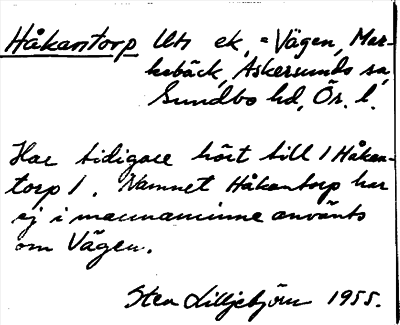 Håkantorp Utj ek, = Vägen, Mar-
kebäck, Askersunds sn,
Sundbo hd, Ör. l.
Har tidigare hört till 1 Håkan-
torp 1. Namnet Håkantorp har
ej i mannaminne använts
om Vägen.
Sten Lilljebjörn 1955.